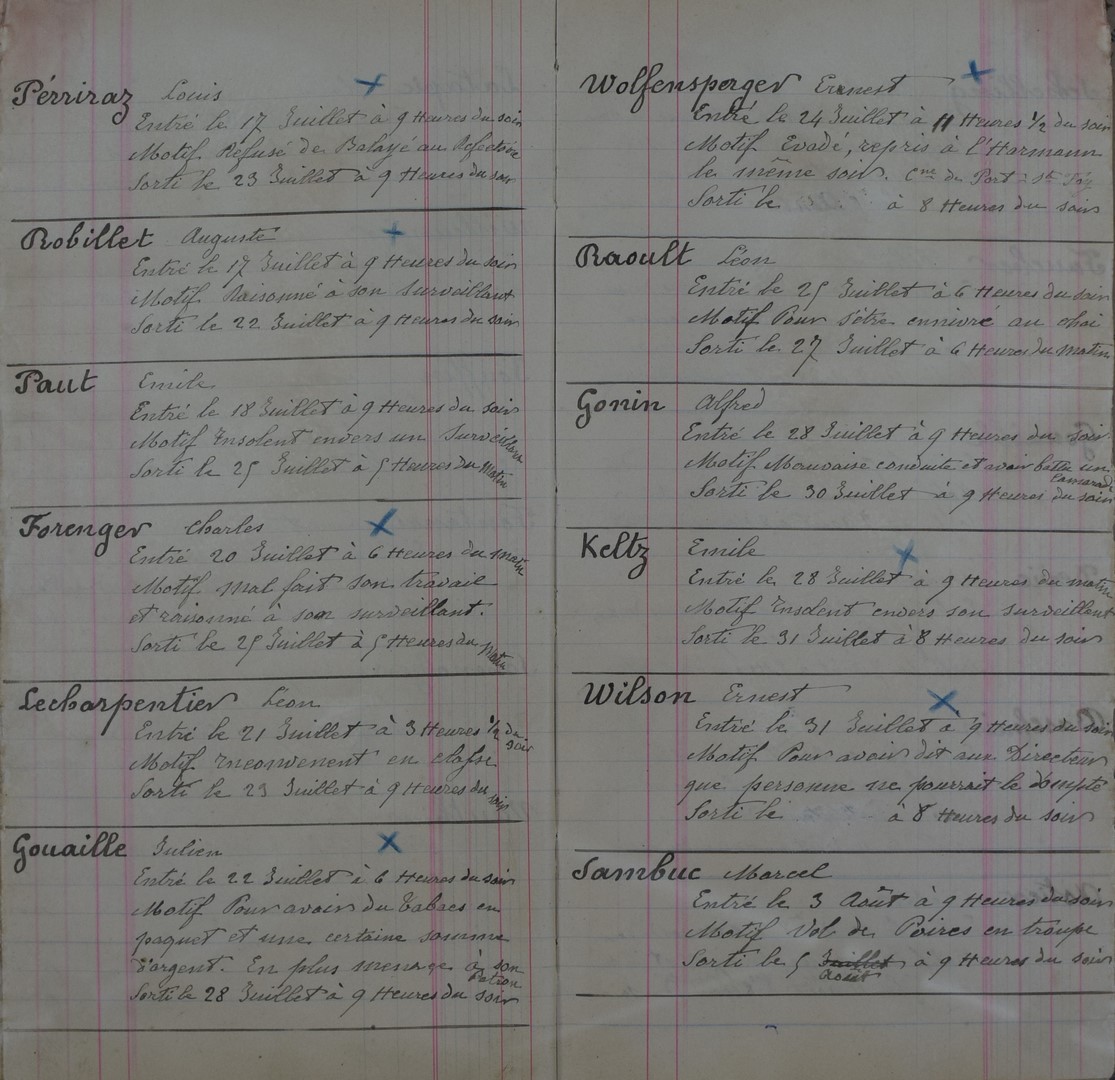 Pérriraz Louis
Entré le 17 Juillet à 9 Heures du soir
Motif Refusé de Balayé au Refectoire
Sorti le 23 Juillet à 9 Heures du soir
Robillet Auguste
Entré le 17 Juillet à 9 Heures du soir
Motif Raisonné à son surveillant
Sorti le 22 Juillet à 9 Heures du soir
Paut Emile
Entré le 18 Juillet à 9 Heures du soir
Motif Insolent envers un surveillant
Sorti le 25 Juillet à 5 Heures du Matin
Forenger Charles
Entré 20 Juillet à 6 Heures du matin
Motif mal fait son travail
et raisonné à son surveillant.
Sorti le 25 Juillet à 5 Heures du Matin
Lecharpentier Léon
Entré le 21 Juillet à 3 Heures 1/2 du soir
Motif Inconvenent en classe
Sorti le 23 Juillet à 9 Heures du soir
Gouaille Julien
Entré le 22 Juillet à 6 Heures du soir
Motif Pour avoir du tabacs en
paquet et une certaine somme
d'argent. En plus menace à son patron
Sorti le 28 Juillet à 9 Heures du soir
Wolfensperger Ernest
Entré le 24 Juillet à 11 Heures 1/2 du soir
Motif Evadé, repris à l'Harmann
le même soir. Cne de Port-Ste Foy
Sorti le à 8 Heures du soir
Raoult Léon
Entré le 25 Juillet à 6 Heures du soir
Motif Pour s'être ennivré au chai
Sorti le 27 Juillet à 6 Heures du matin
Gonin Alfred
Entré le 28 Juillet à 9 Heures du soir
Motif Mauvaise conduite et avoir battu un camarade
Sorti le 30 Juillet à 9 Heures du soir
Keltz Emile
Entré le 28 Juillet à 9 Heures du matin
Motif Insolent envers son surveillent
Sorti le 31 Juillet à 8 Heures du soir
Wilson Ernest
Entré le 31 Juillet à 9 Heures du soir
Motif Pour avoir dit aux Directeur
que personne ne pourrait le dompté
Sorti le à 8 Heures du soir
Sambuc Marcel
Entré le 3 Août à 9 Heures du soir
Motif Vol de Poires en troupe
Sorti le 5 Juillet Août à 9 Heures du soir